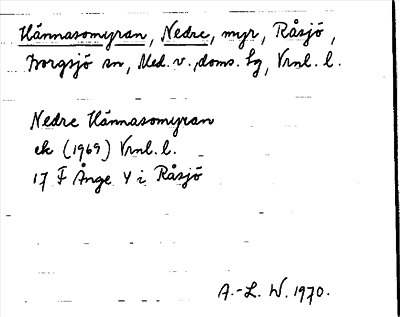 Hännasomyran, Nedre, myr, Råsjö,
Borgsjö sn, Med. v. doms. hg, Vrnl. l.
Nedre Hännasomyran
ek (1969) Vrnl. l.
17 F Ånge Y i Råsjö
A.-L. W. 1970.